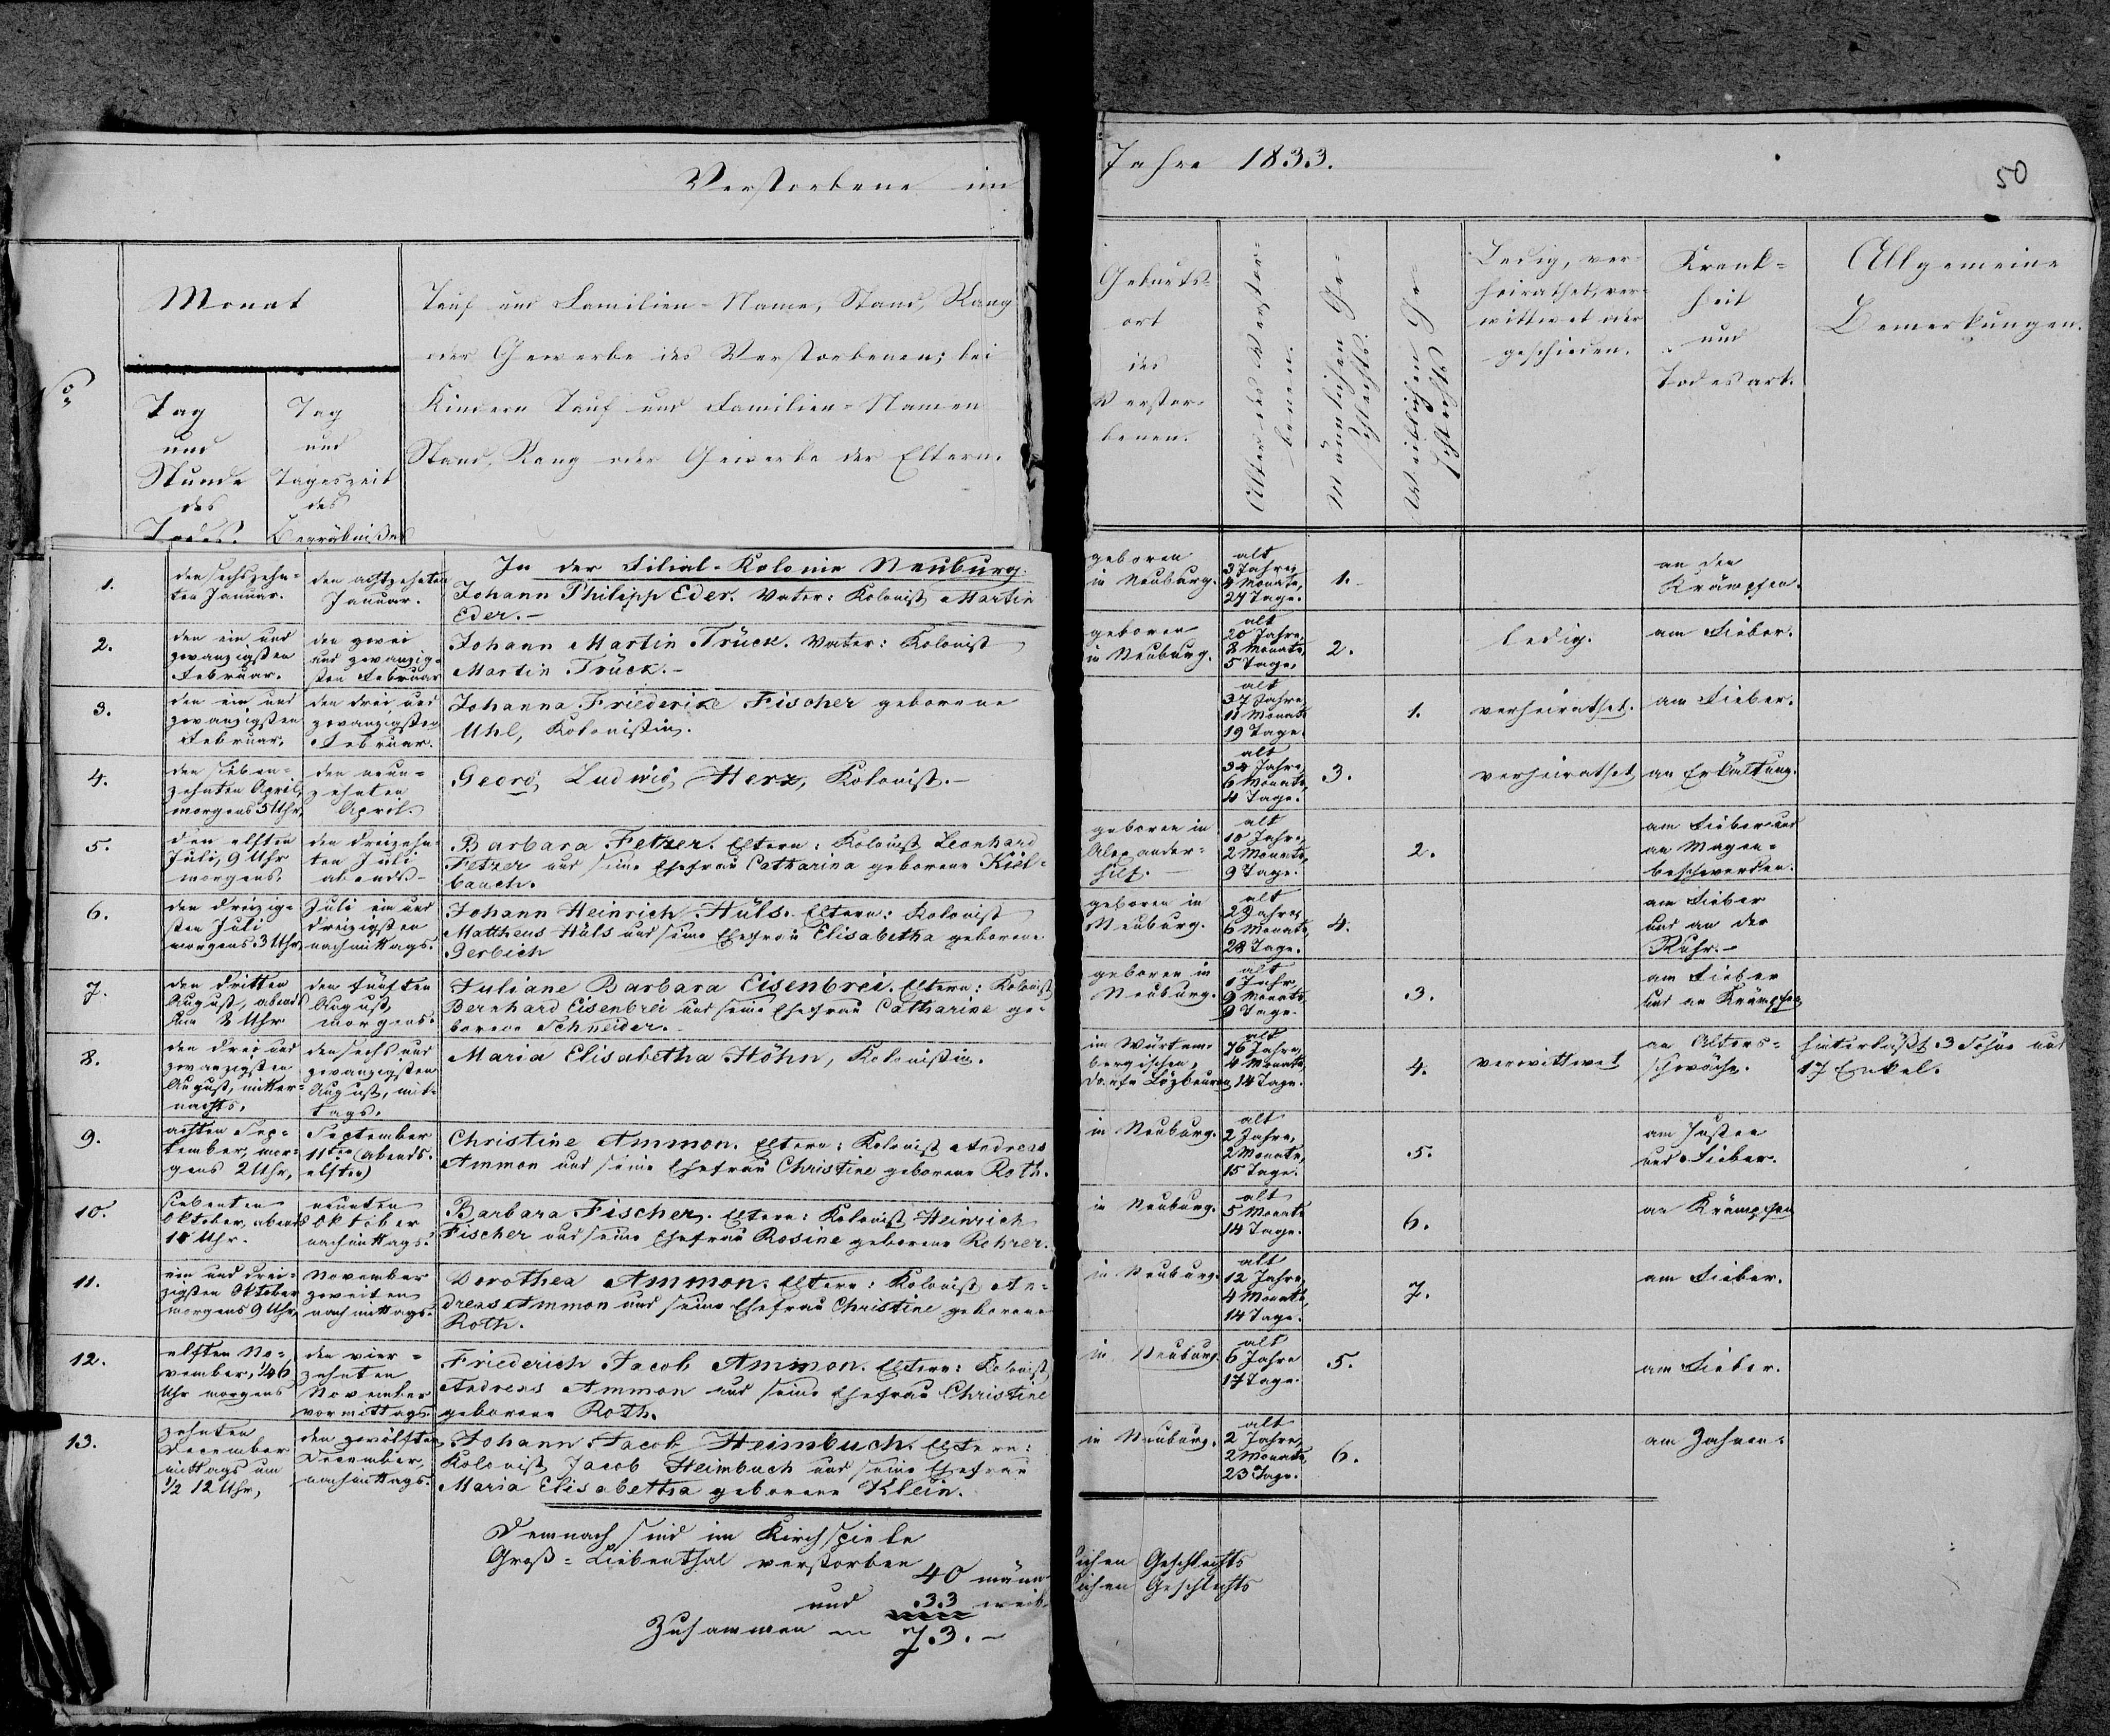 Verstorbene im
Jahre 1833.
50
No
Monat
Tag
und
Stunde
des
Todes.
Tag
und
Tageszeit
des
Begräbnißes
Tauf und Familien-Name, Stand, Rang
oder Gewerbe des Verstorbenen; bei
Kindern Tauf und Familien-Namen
Stand, Rang oder Gewerbe der Eltern.
Geburts-
ort
des
Verstor-
benen.
Alter des Verstor-
benen.
Männlichen Ge-
schlechts.
Weiblichen Ge-
schlechts
Ledig, ver-
heirathet, ver-
wittwet oder
geschieden.
Krank-
heit
und
Todesart.
Allgemeine
Bemerkungen.
In der Filial-Kolonie Neuburg.
1.
den sechszehn-
ten Januar.
den achtzehnten
Januar.
Johann Philipp Eder. Vater: Kolonist Martin
Eder.-
geboren
in Neuburg.
alt
3 Jahre,
4 Monate,
27 Tage.
1.
an den
Krämpfen.
2.
den ein und
zwanzigsten
Februar.
den zwei
und zwanzig-
sten Februar
Johann Martin Trück. Vater: Kolonist
Martin Trück.-
geboren
in Neuburg.
alt
20 Jahre,
8 Monate,
5 Tage.
2.
ledig.
am Fieber.
3.
den ein und
zwanzigsten
Februar.
den drei und
zwanzigsten
Februar.
Johanna Friederike Fischer geborene
Uhl, Kolonistin.
alt
37 Jahre
11 Monate
19 Tage.
1.
verheirathet.
am Fieber.
4.
den sieben-
zehnten April,
morgens 5 Uhr
den neun-
zehnten
April.
Georg Ludwig Herz, Kolonist.-
alt
Jahre,
6 Monate,
4 Tage.
3.
verheirathet
an Erkältung.
5.
den elften
Juli, 9 Uhr
morgens.
den dreizehn-
ten Juli
abends-
Barbara Fetzer. Eltern: Kolonist Leonhard
Fetzer und seine Ehefrau Catharina geborene Kiel-
bauch.
geboren in
Alexander-
hilf.-
alt
10 Jahre,
2 Monate,
9 Tage.
2.
am Fieber und
an Magen-
beschwerden.
6.
den dreizig-
sten Juli
morgens 3 Uhr
Juli ein und
dreizigsten
nachmittags.
Johann Heinrich Hüls. Eltern: Kolonist
Mattheus Hüls und seine Ehefrau Elisabetha geborene
Gerbich
geboren in
Neuburg.
alt
2 Jahre,
6 Monate,
28 Tage.
4.
am Fieber
und an der
Ruhr.-
7.
den dritten
August, abends
um 8 Uhr
den fünften
August,
morgens.
Juliane Barbara Eisenbrei. Eltern: Kolonist
Bernhard Eisenbrei und seine Ehefrau Catharine ge-
borene Schneider.-
geboren in
Neuburg.
alt
1 Jahr,
9 Monate
9 Tage.
3.
am Fieber
und an Krämpfen
8.
den drei und
zwanzigsten
August, mitter-
nachts.
den sechs und
zwanzigsten
August, mit-
tags.
Maria Elisabetha Höhn, Kolonistin.
im Würtem-
bergischen,
Dorfe
alt
76 Jahre,
4 Monate,
14 Tage.
4.
verwittwet
an Alters-
schwäche.
hinterläßt 3 Söhne und
17 Enkel.
9.
achten Sep-
tember, mor-
gens 2 Uhr,
September
11ten (abends.
elften)
Christine Ammon. Eltern: Kolonist Andreas
Ammon und seine Ehefrau Christine geborene Roth.
in Neuburg.
alt
2 Jahre,
2 Monate,
15 Tage.
5.
am Husten
und Fieber.
10.
siebenten
Oktober, abends
Uhr.
neunten
Oktober
nachmittags.
Barbara Fischer. Eltern: Kolonist Heinrich
Fischer und seine Ehefrau Rosine geborene Rohrer.
in Neuburg.
alt
5 Monate
14 Tage.
6.
an Krämpfen
11.
ein und drei-
zigsten Oktober
morgens 9 Uhr
November
zweiten
nachmittags.
Dorothea Ammon. Eltern: Kolonist An-
dreas Ammon und seine Ehefrau Christine geborene
Roth.
in Neuburg.
alt
12 Jahre,
4 Monate,
14 Tage.
7.
am Fieber.
12.
elften No-
vember, 1/4 6
Uhr morgens
den vier-
zehnten
November
vormittags.
Friederich Jacob Ammon. Eltern: Kolonist
Andreas Ammon und seine Ehefrau Christine
geborene Roth.
in Neuburg.
alt
6 Jahre
17 Tage.
5.
am Fieber.
13.
zehnten
December
mittags um
1/2 12 Uhr,
den zwölften
December,
nachmittags.
Johann Jacob Heimbuch. Eltern:
Kolonist Jacob Heimbuch und seine Ehefrau
Maria Elisabetha geborene Klein.
in Neuburg.
alt
2 Jahre,
2 Monate,
23 Tage.
6.
am Zahnen.
Demnach sind im Kirchspiele
Groß-Liebenthal verstorben
40 männlichen Geschlechts
und 33 weiblichen Geschlechts
Zusammen 73.-